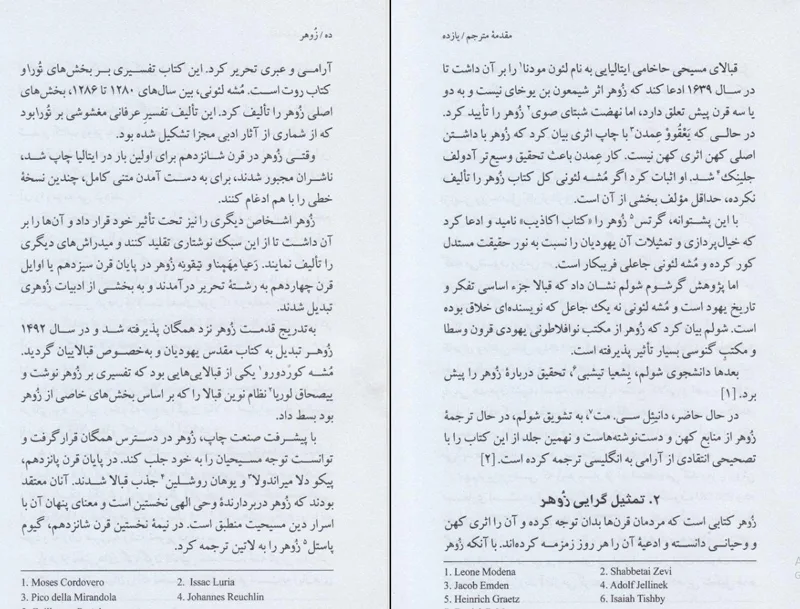 ده/زُوهر
آرامی و عبری تحریر کرد. این کتاب تفسیری بر بخش‌های تُورا و
کتاب روت است. مُشه لئونی، بین سال‌های ۱۲۸۰ تا ۱۲۸۶، بخش‌های
اصلی زُوهر را تألیف کرد. این تألیف تفسیرِ عرفانی مغشوشی بر تُورا بود
که از شماری از آثار ادبی مجزا تشکیل شده بود.
وقتی زُوهر در قرن شانزدهم برای اولین بار در ایتالیا چاپ شد،
ناشران مجبور شدند، برای به دست آمدن متنی کامل، چندین نسخهٔ
خطی را با هم ادغام کنند.
زُوهر اشخاص دیگری را نیز تحت تأثیر خود قرار داد و آن‌ها را بر
آن داشت تا از این سبک نوشتاری تقلید کنند و میدراش‌های دیگری
را تألیف نمایند. رَعیا مِهِمِنا و تیقونه زُوهر در پایان قرن سیزدهم یا اوایل
قرن چهاردهم به رشتهٔ تحریر درآمدند و به بخشی از ادبیات زُوهری
تبدیل شدند.
به‌تدریج قدمت زُوهر نزد همگان پذیرفته شد و در سال ۱۴۹۲
زُوهر تبدیل به کتاب مقدس یهودیان و به‌خصوص قبالاییان گردید.
مُشه کوردورو۱ یکی از قبالایی‌هایی بود که تفسیری بر زوهر نوشت و
ییصحاق لوریا۲ نظام نوین قبالا را که بر اساس بخش‌های خاصی از زُوهر
بود بسط داد.
با پیشرفت صنعت چاپ، زُوهر در دسترس همگان قرار گرفت و
توانست توجه مسیحیان را به خود جلب کند. در پایان قرن پانزدهم،
پیکو دلا میراندولا۳ و یوهان روشلین۴ جذب قبالا شدند. آنان معتقد
بودند که زُوهر دربردارندهٔ وحی الهی نخستین است و معنای پنهان آن با
اسرار دین مسیحیت منطبق است. در نیمهٔ نخستین قرن شانزدهم، گیوم
پاستل۵ زُوهر را به لاتین ترجمه کرد.
1. Moses Cordovero 2. Issac Luria
3. Pico della Mirandola 4. Johannes Reuchlin
مقدمهٔ مترجم/یازده
قبالای مسیحی حاخامی ایتالیایی به نام لئون مودنا۱ را بر آن داشت تا
در سال ۱۶۳۹ ادعا کند که زُوهر اثر شیمعون بن یوخای نیست و به دو
یا سه قرن پیش تعلق دارد، اما نهضت شبتای صوی۲ زُوهر را تأیید کرد.
در حالی که یَعْقُووْ عِمدن۳ با چاپ اثری بیان کرد که زُوهر با داشتن
اصلی کهن اثری کهن نیست. کار عِمدن باعث تحقیق وسیع‌تر آدولف
جلینک۴ شد. او اثبات کرد اگر مُشه لئونی کل کتاب زُوهر را تألیف
نکرده، حداقل مؤلف بخشی از آن است.
با این پشتوانه، گرتس۵ زُوهر را «کتاب اکاذیب» نامید و ادعا کرد
که خیال‌پردازی و تمثیلات آن یهودیان را نسبت به نور حقیقت مستدل
کور کرده و مُشه لئونی جاعلی فریبکار است.
اما پژوهش گرشوم شولم نشان داد که قبالا جزء اساسی تفکر و
تاریخ یهود است و مُشه لئونی نه یک جاعل که نویسنده‌ای خلاق بوده
است. شولم بیان کرد که زُوهر از مکتب نوافلاطونی یهودی قرون وسطا
و مکتبِ گنوسی بسیار تأثیر پذیرفته است.
بعدها دانشجوی شولم، یِشعیا تیشبی۶، تحقیق دربارهٔ زُوهر را پیش
برد. [۱]
در حال حاضر، دانیِئل سی. مت۷، به تشویق شولم، در حال ترجمهٔ
زُوهر از منابع کهن و دست‌نوشته‌هاست و نهمین جلد از این کتاب را با
تصحیحی انتقادی از آرامی به انگلیسی ترجمه کرده است. [۲]
۲. تمثیل گرایی زُوهر
زُوهر کتابی است که مردمان قرن‌ها بدان توجه کرده و آن را اثری کهن
و وحیانی دانسته و ادعیهٔ آن را هر روز زمزمه کرده‌اند. با آنکه زُوهر
1. Leone Modena 2. Shabbetai Zevi
3. Jacob Emden 4. Adolf Jellinek
5. Heinrich Graetz 6. Isaiah Tishby